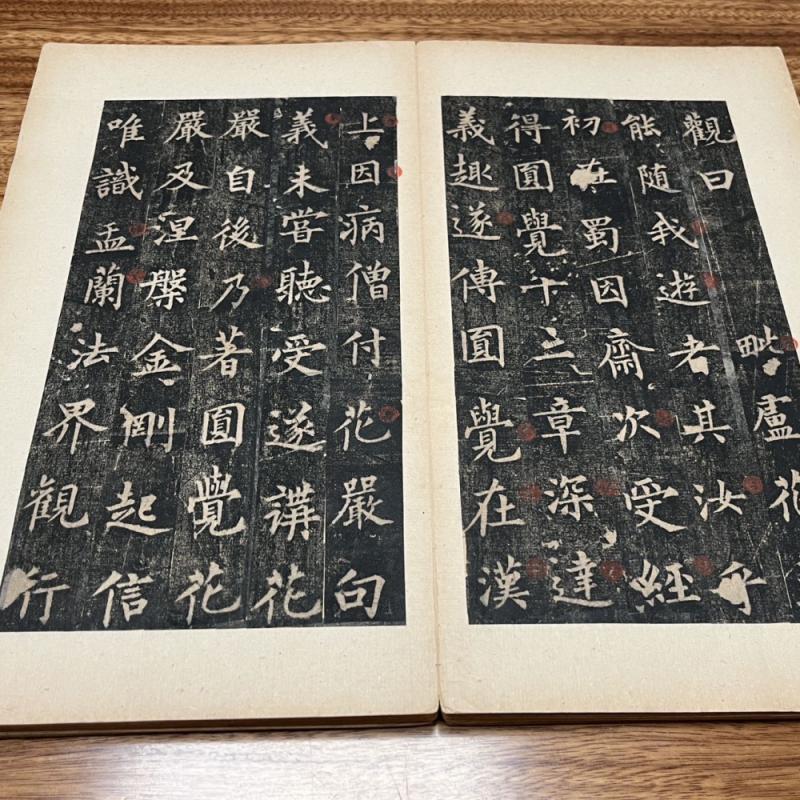 觀曰毗盧花
能隨我遊者其汝乎
初在蜀因齋次受經
得圓覺十三章深達
義趣遂傳圓覺在漢
上因病僧付花嚴句
義未嘗聽受遂講花
嚴自後乃著圓覺花
嚴及涅槃金剛起信
唯識盂蘭法界觀行